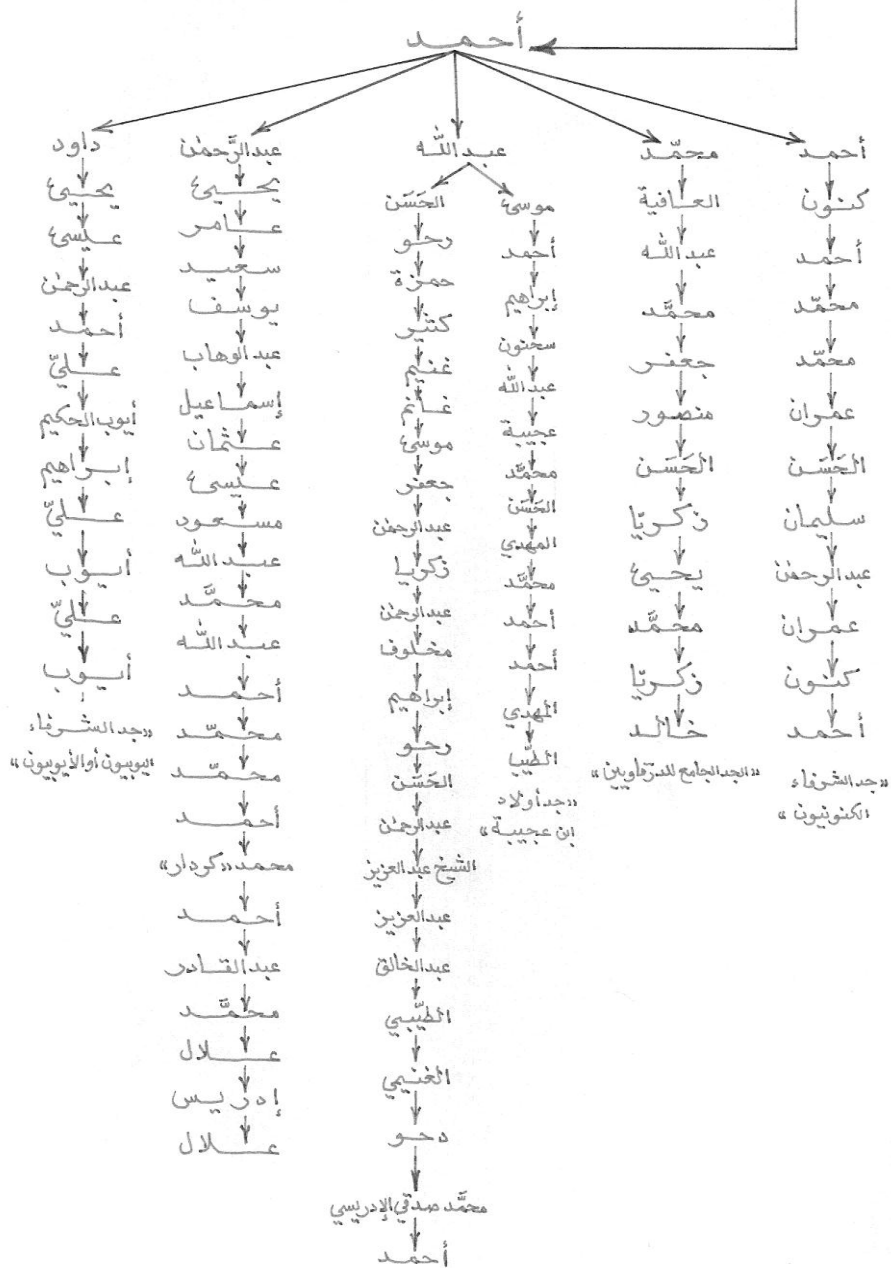 أحمد
أحمد
كنون
أحمد
محمّد
محمّد
عمران
الحَسَن
سليمان
عبدالرحمٰن
عمران
كنون
أحمد
«جد الشرفاء
الكنونيون»
محمّد
العافية
عبدالله
محمَّد
جعفر
منصور
الحَسَن
زكريّا
يحيىٰ
محمَّد
زكريّا
خالد
«الجد الجامع للدرقاويين»
عبدالله
موسىٰ
أحمد
إبراهيم
سحنون
عبدالله
عجيبة
محمَّد
الحَسَن
المهدي
محمَّد
أحمد
أحمد
المهدي
الطيّب
«جد أولاد
ابن عجيبة»
الحَسَن
رحو
حمزة
كثير
غنيم
غانم
موسىٰ
جعفر
عبدالرحمٰن
زكريا
عبدالرحمٰن
مخلوف
إبراهيم
رحو
الحَسَن
عبدالرحمٰن
الشيخ عبدالعزيز
عبدالعزيز
عبدالخالق
الطيّبي
الغنيمي
دحو
محمَّد صدقي الإدريسي
أحمد
عبدالرَّحمٰن
يحيىٰ
عامر
سعيد
يوسف
عبدالوهاب
إسماعيل
عثمان
عيسىٰ
مسعود
عبدالله
محمَّد
عبدالله
أحمد
محمّد
محمّد
أحمد
محمد «كردار»
أحمد
عبدالقادر
محمَّد
علال
إدريس
علال
داود
يحيىٰ
عيسىٰ
عبدالرحمٰن
أحمد
عليّ
أيوب الحكيم
إبراهيم
عليّ
أيوب
عليّ
أيوب
«جد الشرفاء
اليوبيون أو الأيوبيون»